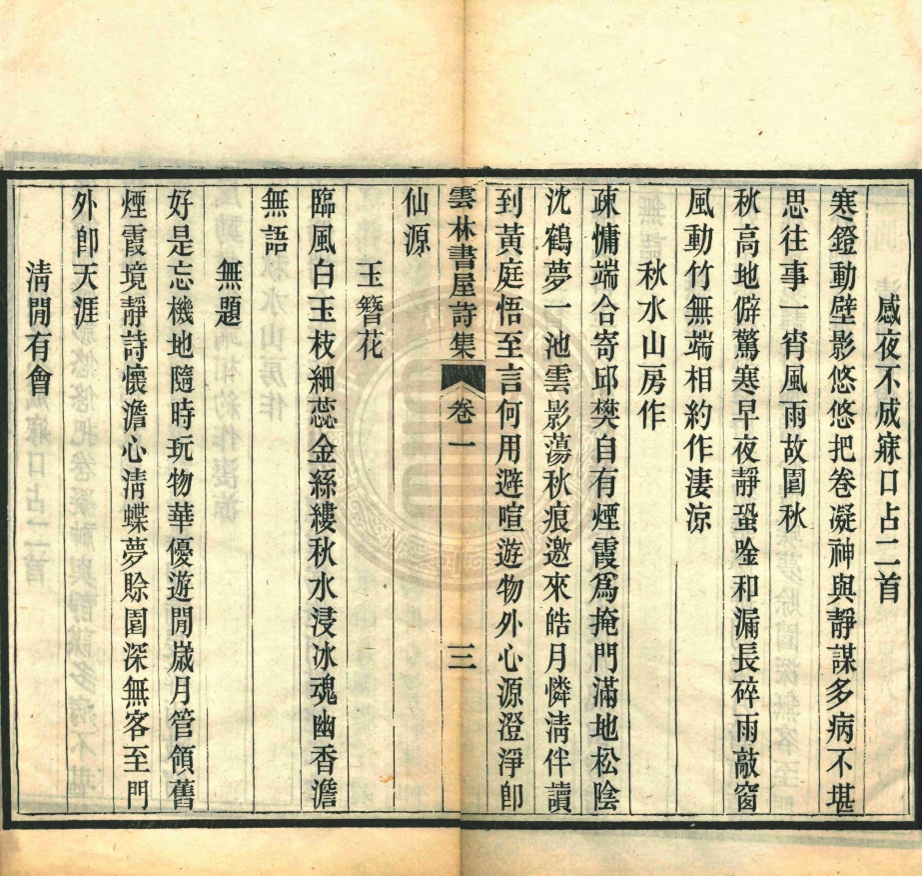 感夜不成寐口占二首
寒鐙動壁影悠悠把卷凝神與靜謀多病不堪
思往事一宵風雨故園秋
秋高地僻驚寒早夜靜蛩唫和漏長碎雨敲窗
風動竹無端相約作淒涼
秋水山房作
疎慵端合寄邱樊自有煙霞爲掩門滿地松陰
沈鶴夢一池雲影蕩秋痕邀來皓月憐淸伴讀
到黃庭悟至言何用避喧遊物外心源澄淨卽
雲林書屋詩集 卷一 三
仙源
玉簪花
臨風白玉枝細蕊金絲縷秋水浸冰魂幽香澹
無語
無題
好是忘機地隨時玩物華優遊閒歲月管領舊
煙霞境靜詩懷澹心淸蝶夢賒園深無客至門
外卽天涯
淸閒有會